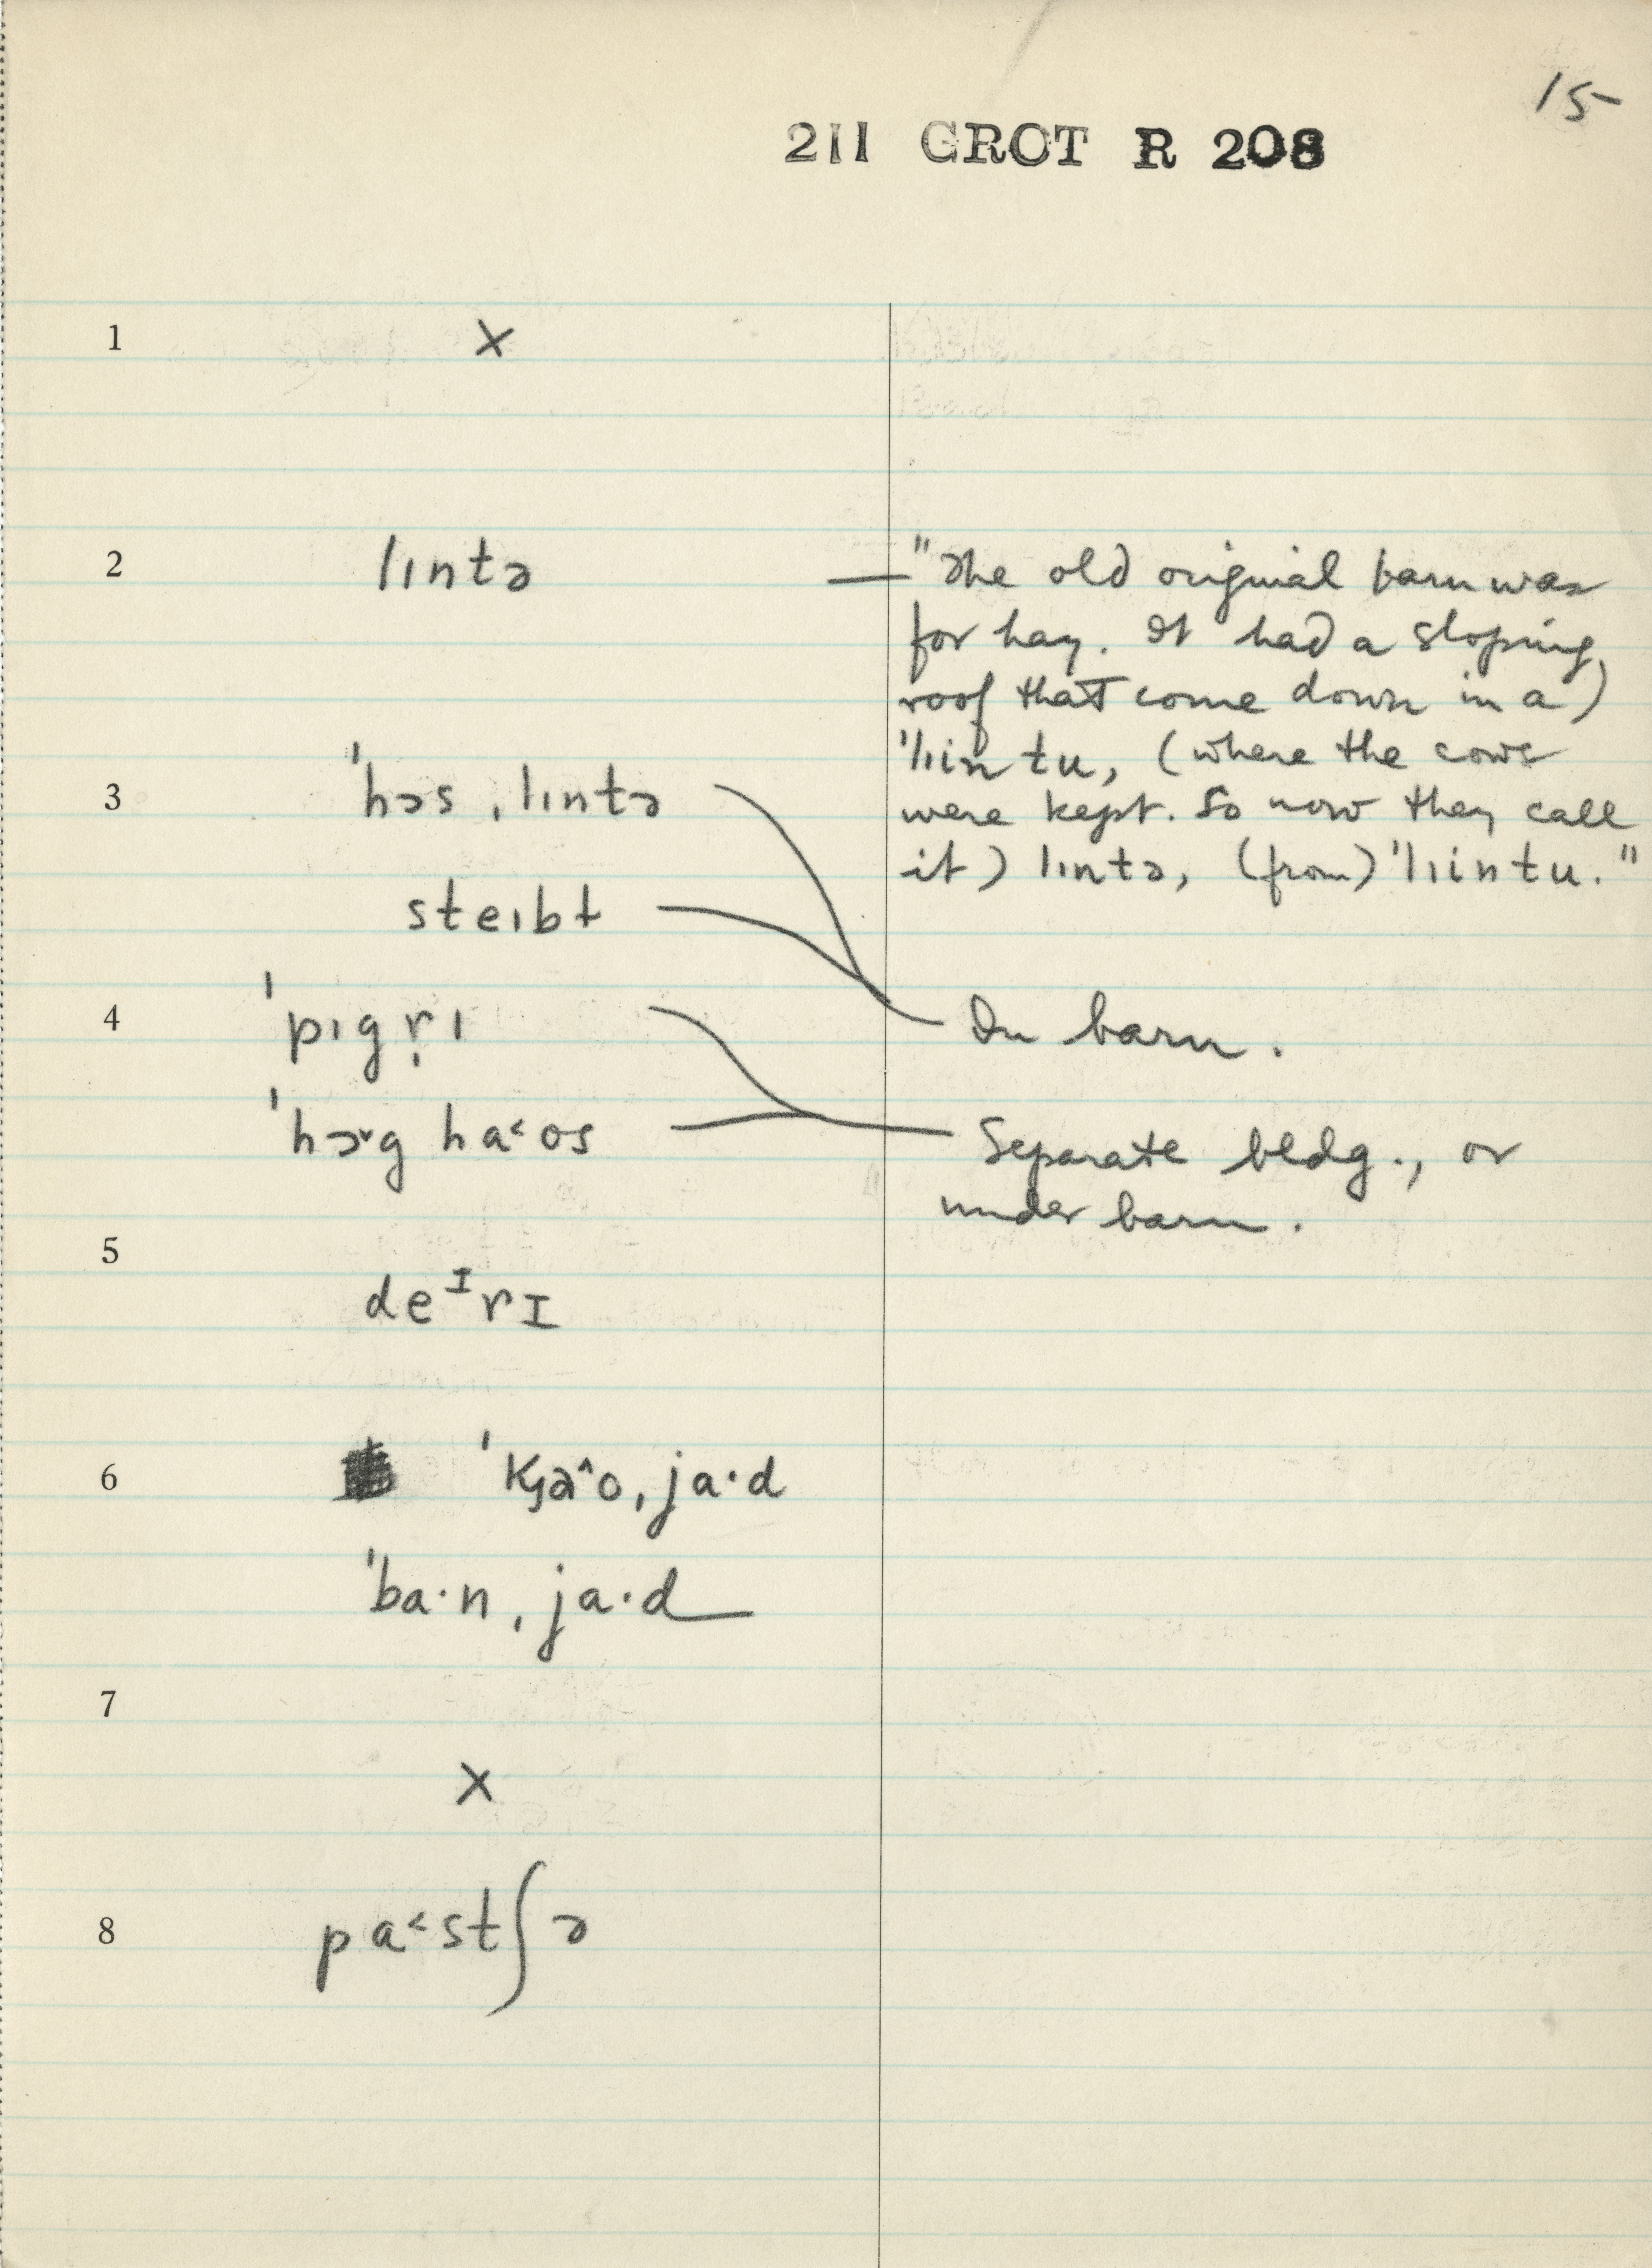 15
211 GROT R 208
1 ×
2 lıntə — "The old original barn was
for hay. It had a sloping
roof that come down in a)
ˈlıin tu, (where the cows
were kept. So now they call
it) lıntə, (from) ˈlıintu."
3 ˈhɔs ˌlıntə
steıbɫ In barn.
4 ˈpıg r̩ı
ˈhɔ˅g ha˂os Separate bldg., or
under barn.
5 deᴵrɪ
6 ˈkȷa^o ˌja·d
ˈba·n ˌja·d
7 ×
8 pa˂stʃə